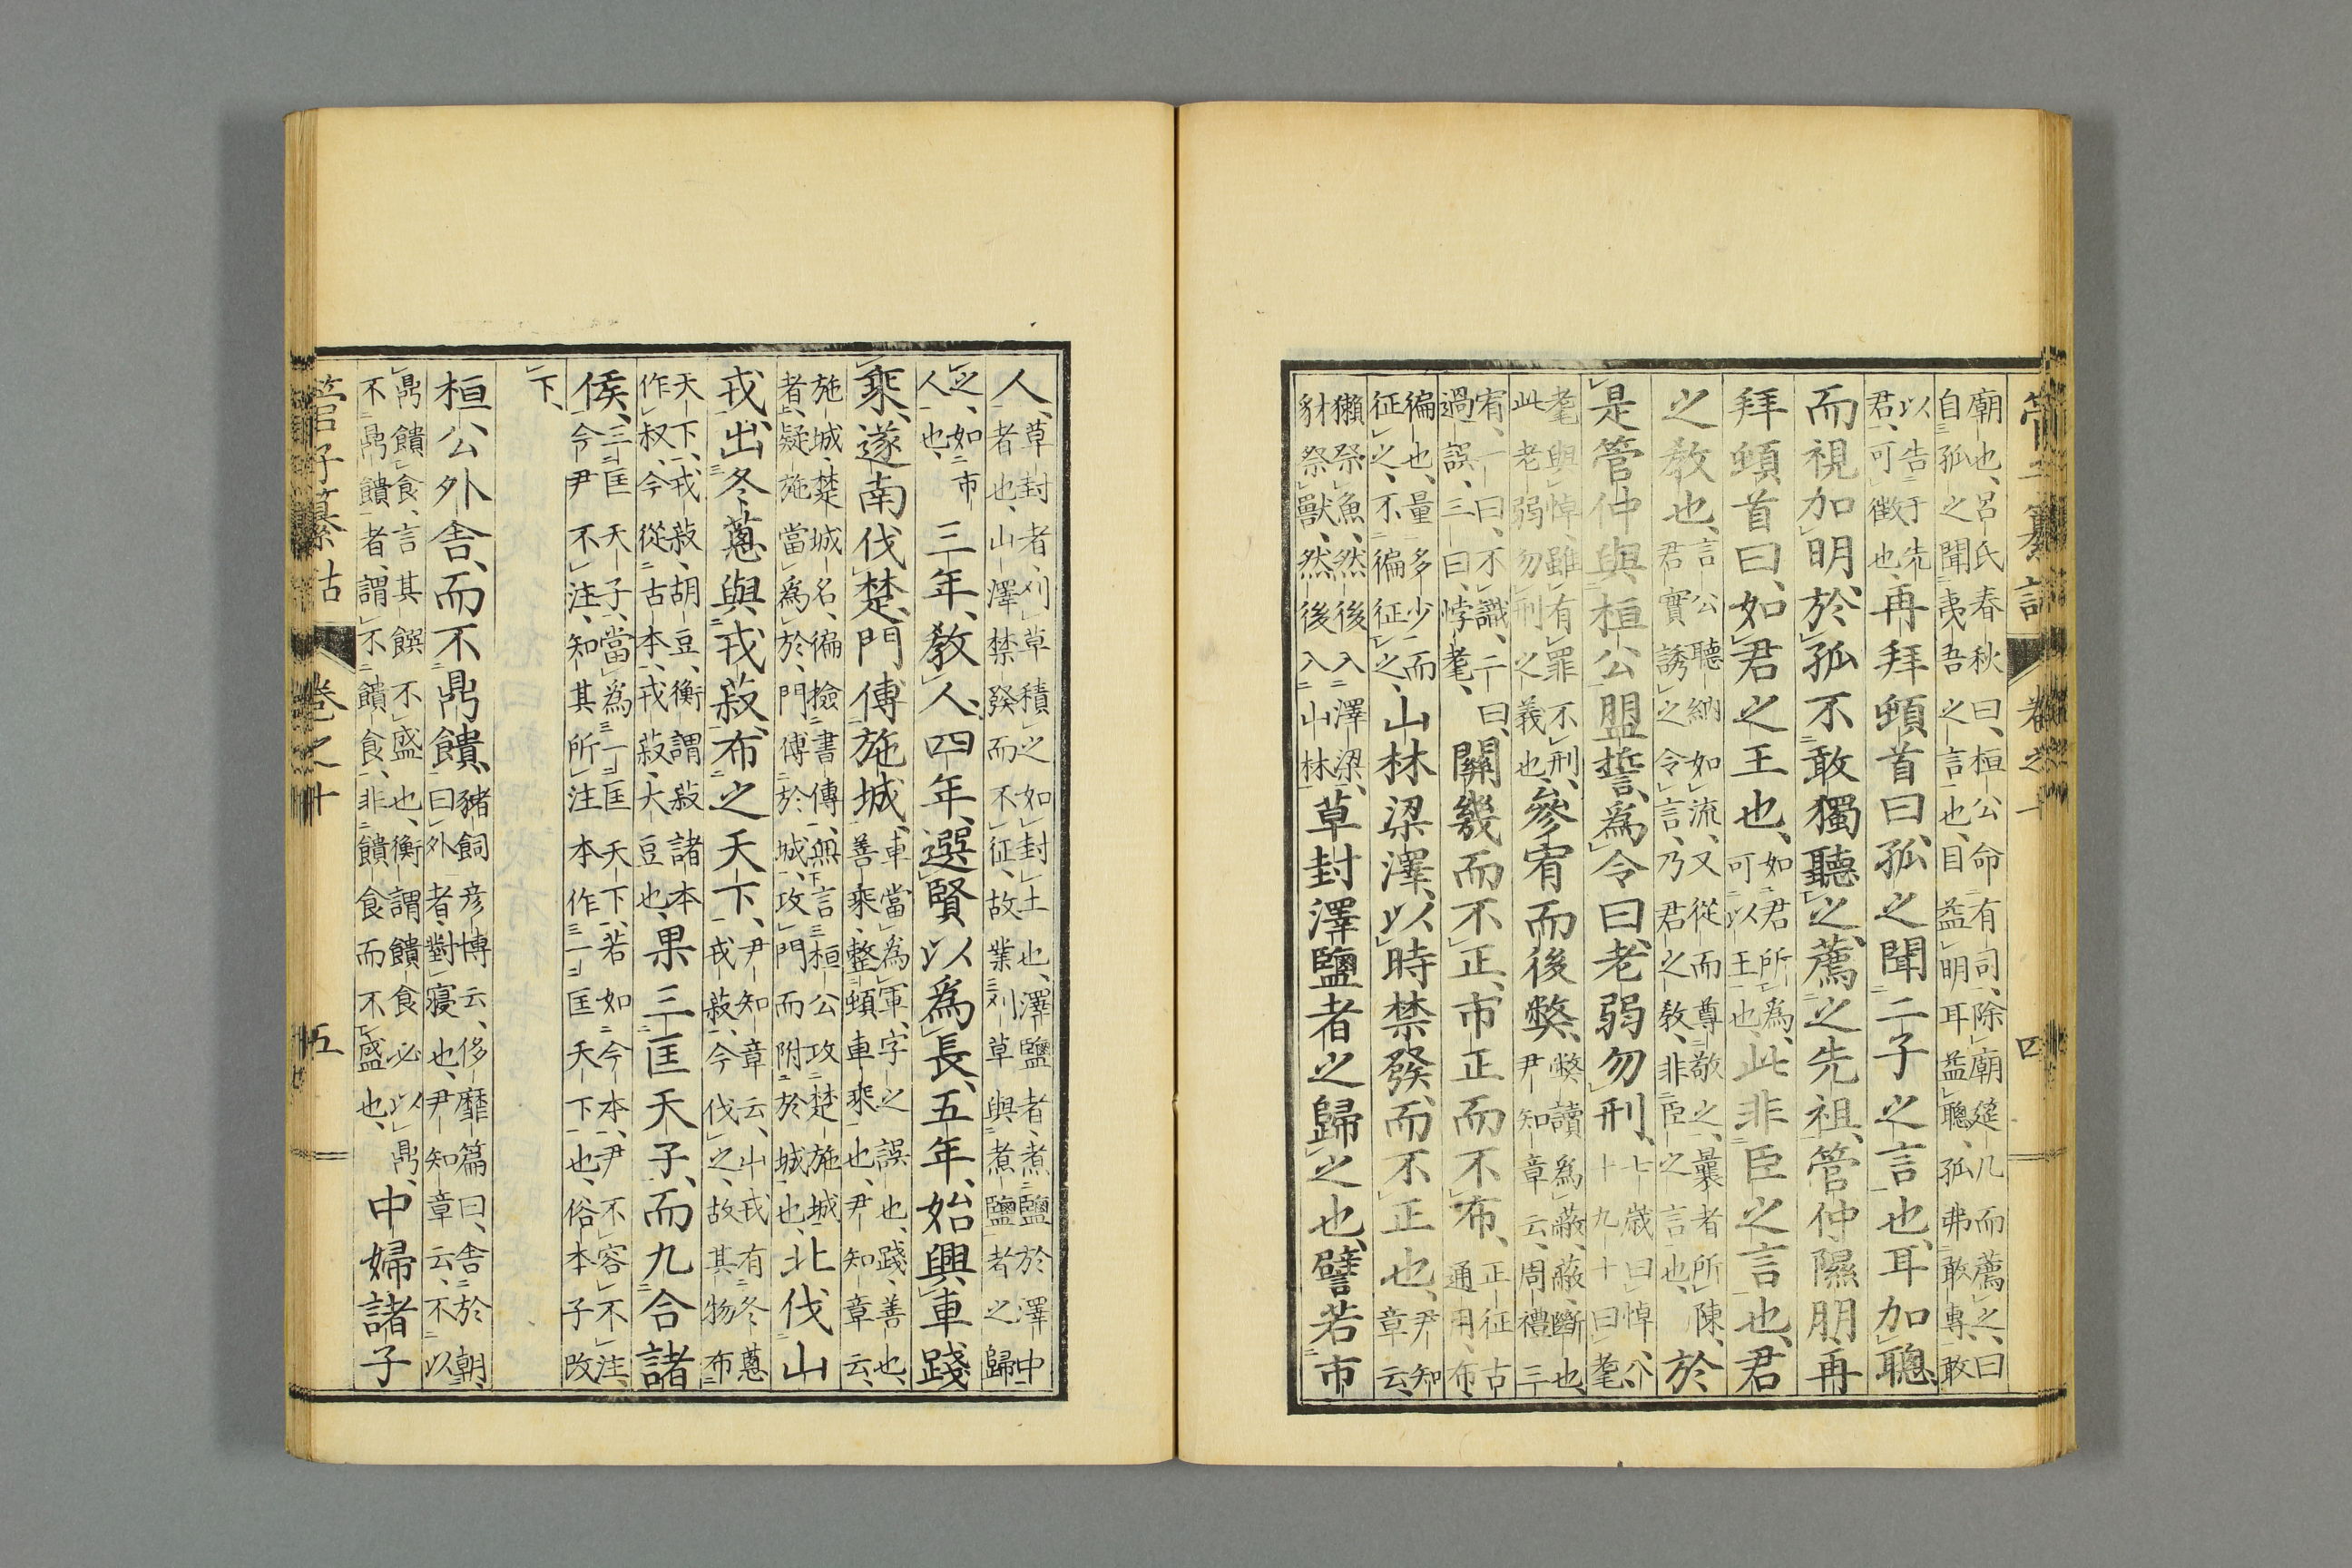 管子纂詁 卷之十 四
廟也、呂氏春秋曰、桓公命有司、除廟筵几而薦之、曰
自孤之聞夷吾之言也、目益明耳益聰、孤弗敢專、敢
以告于先
君、可徵也、再拜頓首曰、孤之聞二子之言也、耳加聰、
而視加明、於孤不敢獨聽之、薦之先祖、管仲隰朋再
拜頓首曰、如君之王也、如君所爲、可以王也、此非臣之言也、君
之敎也、言公聽納如流、又從而尊敬之、曩者所陳、
君實誘之令言、乃君之敎、非臣之言也、於
是管仲與桓公盟誓、爲令曰、老弱勿刑、七歲曰悼、八十九十曰耄、
耄與悼、雖有罪不刑、
此老弱勿刑之義也、參宥而後弊、弊讀爲蔽、蔽、斷也、
尹知章云、周禮三
宥、一曰、不識、二曰、
過誤、三曰、悖耄、關幾而不正、市正而不布、正征古
通用、布
徧也、量多少而
征之、不徧征之、山林梁澤、以時禁發、而不正也、尹知
章云、
獺祭魚、然後入澤梁、
豺祭獸、然後入山林、草封澤鹽者之歸之也、譬若市
人、草封者、刈草積之如封土也、澤鹽者、煮鹽於澤中
者也、山澤禁發而不征、故業刈草與煮鹽者之歸
之、如市
人也、三年、敎人、四年、選賢以爲長、五年、始興車踐
乘、遂南伐楚、門傅施城、車當爲軍、字之誤也、踐、善也、
善乘、整頓車乘也、尹知章云、
施城、楚城名、徧撿書傳、無言桓公攻楚施城
者、疑施當爲於、門傅於城、攻門而附於城也、北伐山
戎、出冬蔥與戎菽、布之天下、尹知章云、山戎有冬蔥
戎菽、今伐之、故其物布
天下、戎菽、胡豆、衡謂菽諸本
作叔、今從古本、戎菽、大豆也、果三匡天子、而九合諸
侯、三匡天子、當爲一匡天下、若如今本、尹不容不注、
今尹不注、知其所注本作一匡天下也、俗本子改
下、
桓公外舍、而不鼎饋、豬飼彦博云、侈靡篇曰、舍於朝、
曰外者、對寢也、尹知章云、不以
鼎饋食、言其饌不盛也、衡謂饋食必以鼎、
不鼎饋者、謂不饋食、非饋食而不盛也、中婦諸子
管子纂詁 卷之十 五